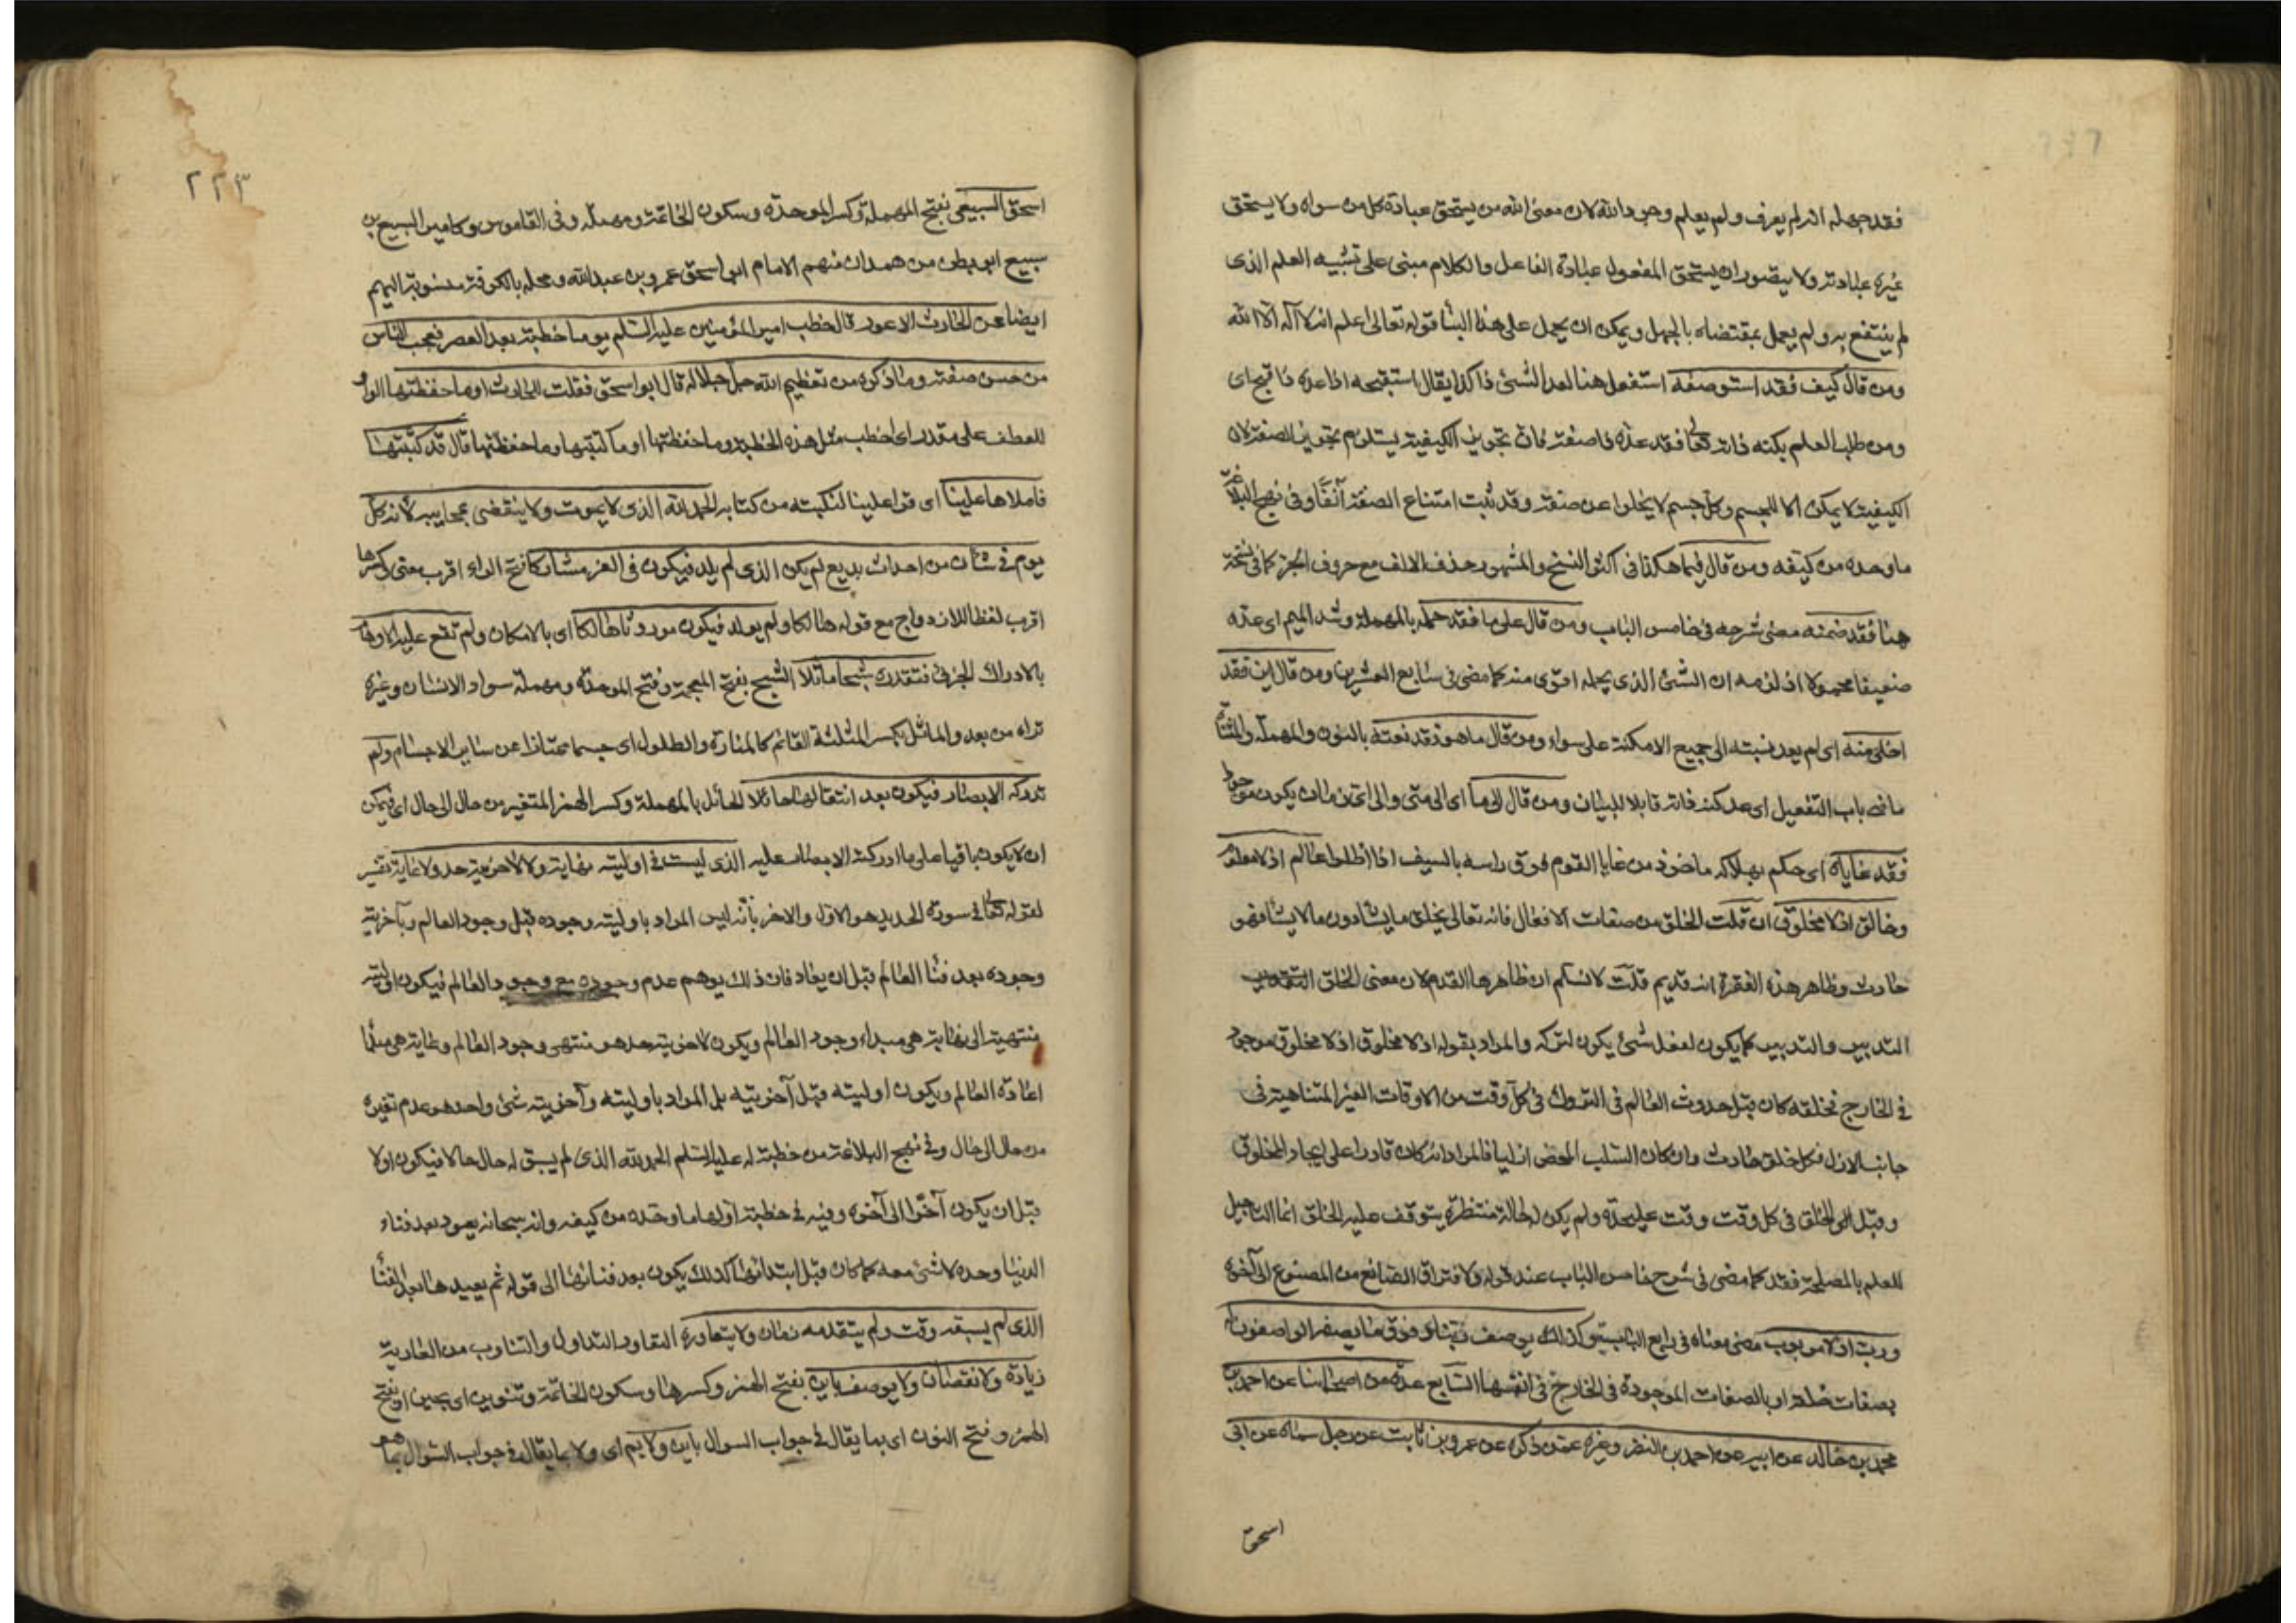 فقد جهله انه لم يعرف ولم يعلم وجود الله لان معنى الله من يستحق عبادة كل من سواه ولا يستحق
غيره عبادته ولا يتصور ان يستحق المفعول عبادة الفاعل والكلام مبنى على تشبيه العلم الذى
لم ينتفع به ولم يعمل بمقتضاه بالجهل ويمكن ان يحمل على هذا البنا قوله تعالى اعلم انه لا آله الا الله
ومن قال كيف فقد استوصفه استفعل هنا لعد الشئ ذا كذا يقال استقبحه اذا عده ذا قبح اى
ومن طلب العلم بكنه ذاته تعالى فقد عده ذا صفة فان تجويز الكيفية يستلزم تجويز الصفة لان
الكيفية لا يمكن الا للجسم وكل جسم لا يخلوا عن صفة وقد ثبت امتناع الصفة آنفا وفى نهج البلاغة
ما وحده من كيفه ومن قال فيما هكذا فى اكثر النسخ والمشهور حذف الالف مع حروف الجر كما فى نسخة
هنا فقد ضمنه مضى شرحه فى خامس الباب ومن قال على ما فقد حمله بالمهملة وشد الميم اى عده
ضعيفا محمولا اذ لزمه ان الشئ الذى يحمله اقوى منه كما مضى فى سابع العشرين ومن قال اين فقد
اخلى منه اى لم يعد نسبته الى جميع الامكنة على سواء ومن قال ما هو فقد نعته بالنون والمهملة والمثناة
ماضى باب التفعيل اى عد كنه ذاته قابلا للبيان ومن قال الى ما اى الى متى والى اى زمان يكون موجودا
فقد غاياه اى حكم بهلاكه ماخوذ من غايا القوم فوق راسه بالسيف اذا اظلوا عالم اذ لا معلوم
وخالق اذ لا مخلوق ان قلت الخلق من صفات الافعال فانه تعالى يخلق ما يشاء دون ما لا يشاء فهو
حادث وظاهر هذه الفقرة انه قديم قلت لا نسلم ان ظاهرها القدم لان معنى الخلق
التدبير والتدبير كما يكون لفعل شئ يكون لتركه والمراد بقوله اذ لا مخلوق اذ لا مخلوق موجود
فى الخارج فخلقه كان قبل حدوث العالم فى التروك فى كل وقت من الاوقات الغير المتناهية فى
جانب الازل فكل خلق حادث وان كان السلب المحض ازليا فالمراد انه كان قادرا على ايجاد المخلوق
وقبل الخلق فى كل وقت وقت على حده ولم يكن له حالة منتظرة يتوقف عليه الخلق انما التاجيل
للعلم بالمصلحة فقد كما مضى فى شرح خامس الباب عند قوله ولا فتراق الصانع من المصنوع الى آخره
ورب اذ لا مربوب مضى معناه فى رابع الباب وكذلك يوصف ربنا اى فوق ما يصفه الواصفون اى
بصفات خلقه او بالصفات الموجودة فى الخارج فى انفسها السابع عدة من اصحابنا عن احمد بن
محمد بن خالد عن ابيه عن احمد بن النضر وغيره عمن ذكره عن عمرو بن ثابت عن رجل سماه عن ابى
اسحق
٢٢٣
اسحق السبيعى بفتح المهملة وكسر الموحدة وسكون الخاتمة ومهملة وفى القاموس وكامير السبيع بن
سبيع ابو بطن من همدان منهم الامام ابو اسحق عمرو بن عبدالله ومحلة بالكوفة منسوبة اليهم
ايضا عن الحارث الاعور قال خطب امير المؤمنين عليه السلم يوما خطبة بعد العصر فعجب الناس
من حسن صفته وما ذكره من تعظيم الله جل جلاله قال ابو اسحق فقلت للحارث او ما حفظتها الواو
للعطف على مقدر اى اخطب مثل هذه الخطبة وما حفظتها او ما كتبتها وما حفظتها قال قد كتبتها
فاملاها علينا اى قرا علينا لنكتبه من كتابه الحمد لله الذى لا يموت ولا ينقضى عجايبه لانه كل
يوم فى شان من احداث بديع لم يكن الذى لم يلد فيكون فى العز مشاركا فتح الراء اقرب معنى وكسرها
اقرب لفظا للازدواج مع قوله هالكا ولم يولد فيكون موروثا هالكا اى بالامكان ولم تقع عليه الاوهام
بالادراك الجزئى فتقدره شبحا ماثلا الشبح بفتح المعجمة وفتح الموحدة ومهملة سواد الانسان وغيره
تراه من بعد والماثل بكسر المثلثة القائم كالمنارة والطلول اى جسما ممتازا عن ساير الاجسام ولم
تدركه الابصار فيكون بعد انتقالها حائلا الحائل بالمهملة وكسر الهمز المتغير من حال الى حال اى فيمكن
ان لا يكون باقيا على ما ادركته الابصار عليه الذى ليست فى اوليته نهاية ولا لاخريته حد ولا غاية تفسير
لقوله تعالى فى سورة الحديد هو الاول والاخر بانه ليس المراد باوليته وجوده قبل وجود العالم وبآخريته
وجوده بعد فنا العالم قبل ان يعاد فان ذلك يوهم عدم وجوده مع وجود العالم فيكون اوليته
منتهية الى نهاية هى مبداء وجود العالم ويكون لاخريته حد هو منتهى وجود العالم وغاية هى مبدا
اعادة العالم ويكون اوليته قبل آخريته بل المراد باوليته وآخريته شئ واحد هو عدم تغيره
من حال الى حال وفى نهج البلاغة من خطبة له عليه السلم الحمد لله الذى لم يسبق له حال حالا فيكون اولا
قبل ان يكون آخرا الى آخره وفيه فى خطبة اولها ما وحده من كيفه وانه سبحانه يعود بعد فناء
الدنيا وحده لا شئ معه كما كان قبل ابتدائها كذلك يكون بعد فنائها الى قوله ثم يعيدها بعد الفنا
الذى لم يسبقه وقت ولم يتقدمه زمان ولا يتعاوره التعاور التداول والتناوب من العارية
زيادة ولا نقصان ولا يوصف باين بفتح الهمز وكسرها وسكون الخاتمة وتنوين اى بحين او بفتح
الهمز وفتح النون اى بما يقال فى جواب السوال باين ولا بم اى ولا بما يقال فى جواب السوال بما هو